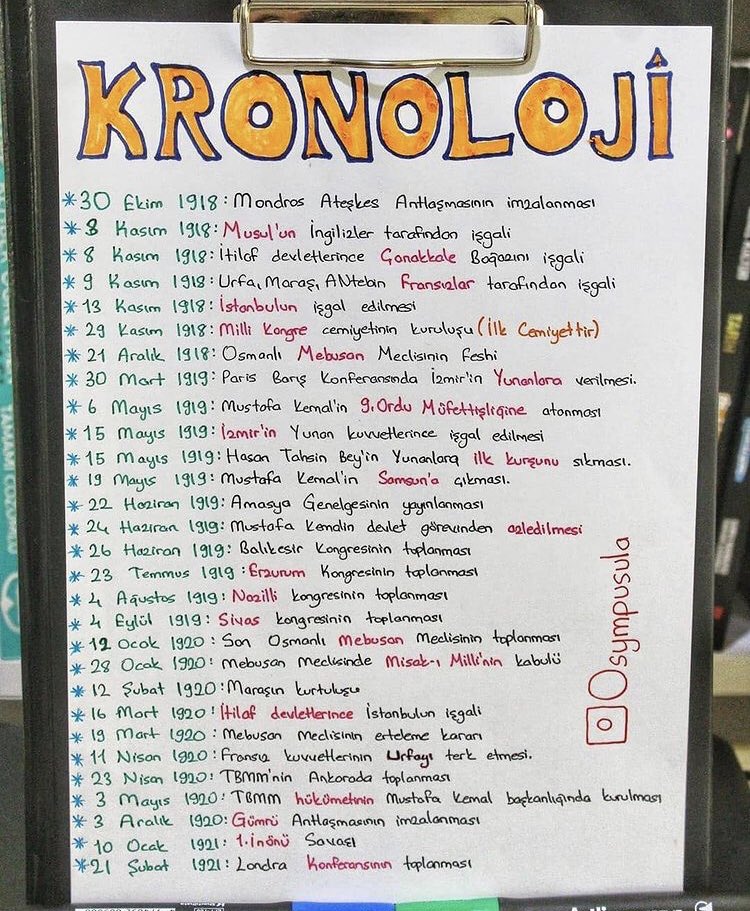 KRONOLOJİ
* 30 Ekim 1918: Mondros Ateşkes Antlaşmasının imzalanması
* 3 Kasım 1918: Musul'un İngilizler tarafından işgali
* 8 Kasım 1918: İtilaf devletlerince Çanakkale Boğazını işgali
* 9 Kasım 1918: Urfa, Maraş, ANtebin Fransızlar tarafından işgali
* 13 Kasım 1918: İstanbulun işgal edilmesi
* 29 Kasım 1918: Milli Kongre cemiyetinin kuruluşu (İlk Cemiyettir)
* 21 Aralık 1918: Osmanlı Mebusan Meclisinin feshi
* 30 Mart 1919: Paris Barış Konferansında İzmir'in Yunanlara verilmesi.
* 6 Mayıs 1919: Mustafa Kemal'in 9.Ordu Müfettişliğine atanması
* 15 Mayıs 1919: İzmir'in Yunan kuvvetlerince işgal edilmesi
* 15 Mayıs 1919: Hasan Tahsin Bey'in Yunanlara ilk kurşunu sıkması.
* 19 Mayıs 1919: Mustafa Kemal'in Samsun'a çıkması.
* 22 Haziran 1919: Amasya Genelgesinin yayınlanması
* 24 Haziran 1919: Mustafa Kemalin devlet görevinden azledilmesi
* 26 Haziran 1919: Balıkesir Kongresinin toplanması
* 23 Temmuz 1919: Erzurum Kongresinin toplanması
* 4 Ağustos 1919: Nazilli kongresinin toplanması
* 4 Eylül 1919: Sivas kongresinin toplanması
* 12 Ocak 1920: Son Osmanlı Mebusan Meclisinin toplanması
* 28 Ocak 1920: Mebusan Meclisinde Misak-ı Milli'nin kabulü
* 12 Şubat 1920: Maraşın kurtuluşu
* 16 Mart 1920: İtilaf devletlerince İstanbulun işgali
* 19 Mart 1920: Mebusan Meclisinin erteleme kararı
* 11 Nisan 1920: Fransız kuvvetlerinin Urfayı terk etmesi.
* 23 Nisan 1920: TBMM'nin Ankarada toplanması
* 3 Mayıs 1920: TBMM hükümetinin Mustafa Kemal başkanlığında kurulması
* 3 Aralık 1920: Gümrü Antlaşmasının imzalanması
* 10 Ocak 1921: 1.İnönü Savaşı
* 21 Şubat 1921: Londra Konferansının toplanması
Osympusula